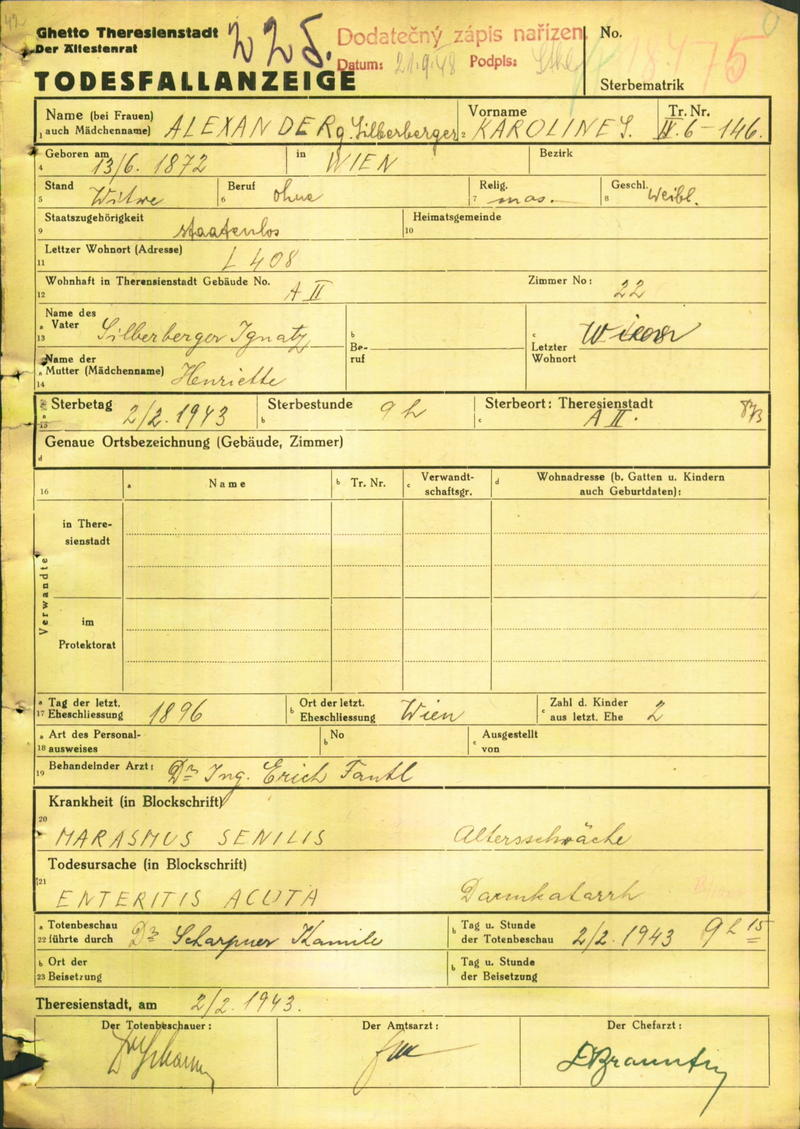 Ghetto Theresienstadt
Der Ältestenrat
225.
Dodatečný zápis nařízen
Datum: 21.9.48 Podpis:
No. 18475
TODESFALLANZEIGE
Sterbematrik
Name (bei Frauen) auch Mädchenname) ALEXANDER g. Silberberger
1
Vorname KAROLINE S.
2
Tr. Nr. IV.6-146.
3
Geboren am 13/6. 1872 in WIEN Bezirk
4
Stand Witwe Beruf ohne Relig. mos. Geschl. Weibl.
5 6 7 8
Staatszugehörigkeit staatenlos Heimatsgemeinde
9 10
Lettzer Wohnort (Adresse) L 408
11
Wohnhaft in Theresienstadt Gebäude No. A II Zimmer No: 22
12
Name des
a Vater Silberberger Ignatz
13
b Beruf
c Letzter Wohnort Wien
Name der
a Mutter (Mädchenname) Henriette
14
Sterbetag 2/2. 1943 Sterbestunde 9 h Sterbeort: Theresienstadt A II.
a 15 b c
Genaue Ortsbezeichnung (Gebäude, Zimmer)
d
16 a Name b Tr. Nr. c Verwandtschaftsgr. d Wohnadresse (b. Gatten u. Kindern auch Geburtdaten):
Verwandte
in Theresienstadt
im Protektorat
a Tag der letzt. 17 Eheschliessung 1896 b Ort der letzt. Eheschliessung Wien c Zahl d. Kinder aus letzt. Ehe 2
a Art des Personal- 18 ausweises b No c Ausgestellt von
Behandelnder Arzt: Dr. Ing. Erich Fantl
19
Krankheit (in Blockschrift)
20
MARASMUS SENILIS Altersschwäche
Todesursache (in Blockschrift)
21
ENTERITIS ACUTA Darmkatarrh
a Totenbeschau 22 führte durch Dr. Scharpner Kamila b Tag u. Stunde der Totenbeschau 2/2. 1943 9h 15
b Ort der 23 Beisetzung b Tag u. Stunde der Beisetzung
Theresienstadt, am 2/2. 1943.
Der Totenbeschauer: Der Amtsarzt: Der Chefarzt: